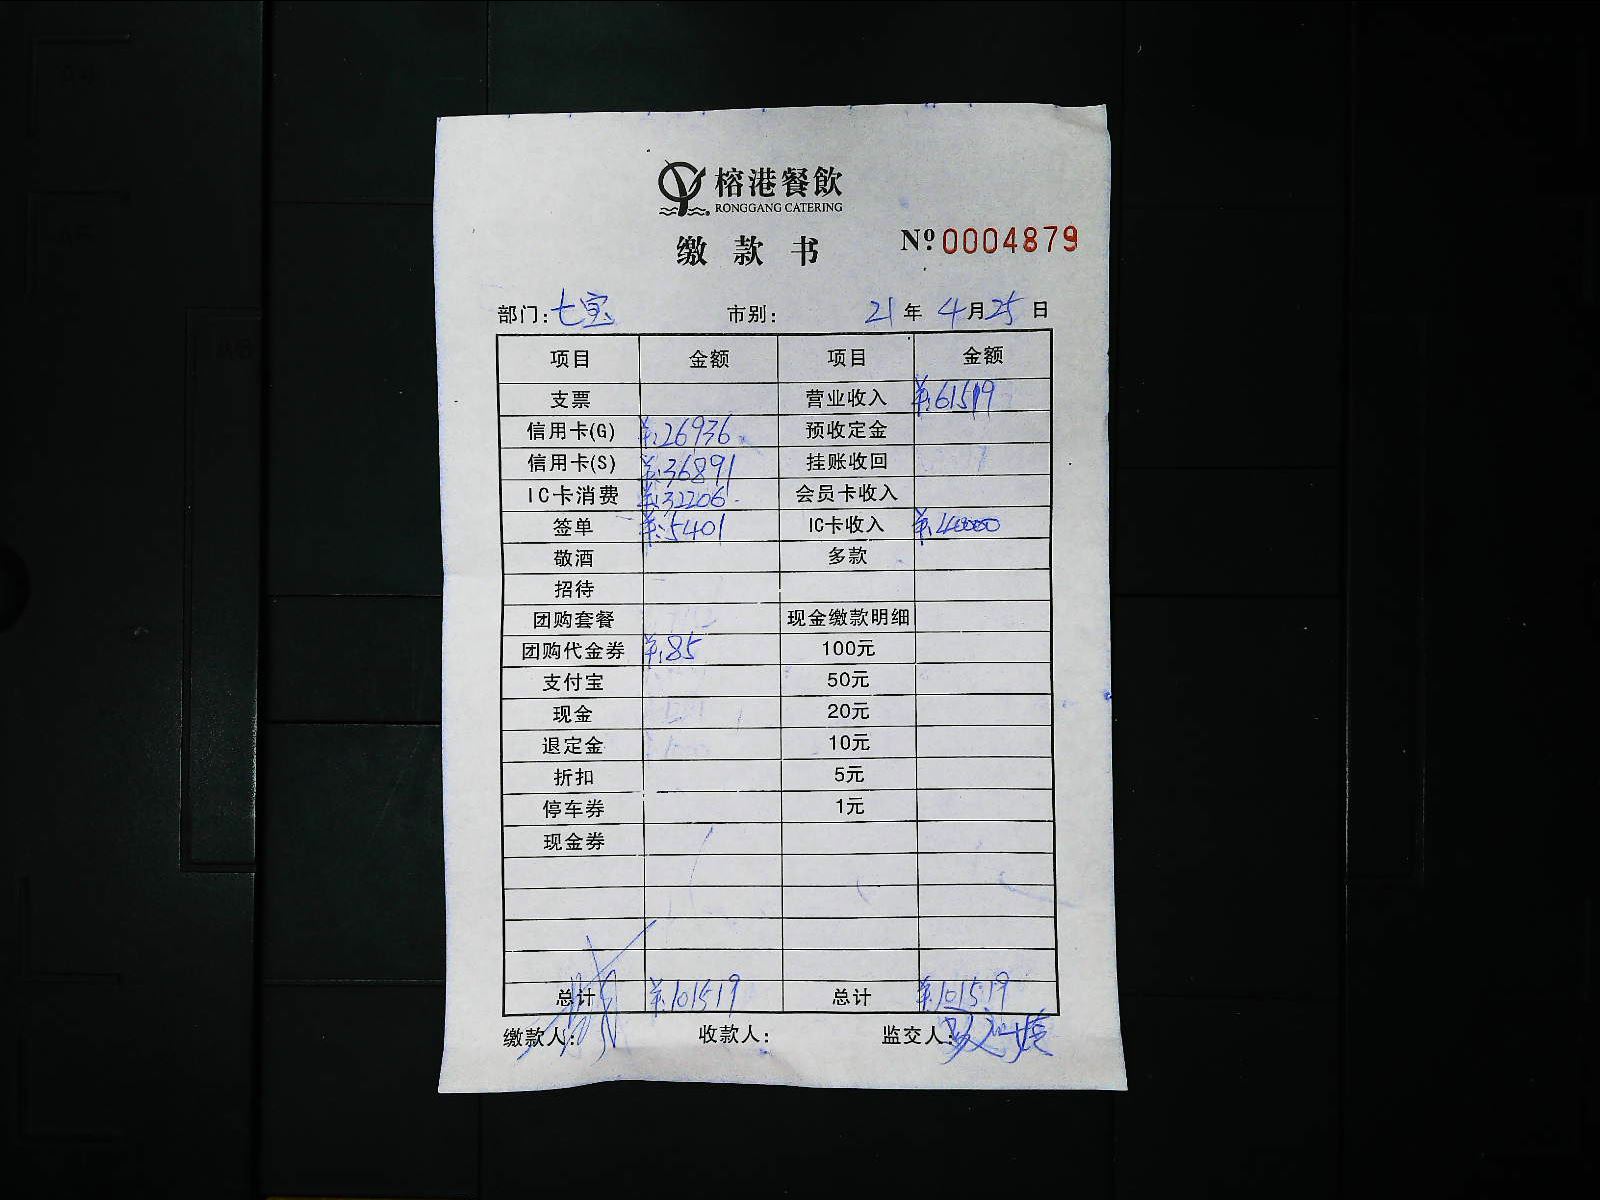 榕港餐飲
RONGGANG CATERING
缴款书
Nº 0004879
部门: 七宝 市别: 21年 4月25日
项目 金额 项目 金额
支票 营业收入 ¥:61519
信用卡(G) ¥:26936 预收定金
信用卡(S) ¥:36891 挂账收回
IC卡消费 ¥:32206. 会员卡收入
签单 ¥:5401 IC卡收入 ¥:40000
敬酒 多款
招待
团购套餐 现金缴款明细
团购代金券 ¥:85 100元
支付宝 50元
现金 20元
退定金 10元
折扣 5元
停车券 1元
现金券
总计 ¥:101519 总计 ¥:101519
缴款人: 收款人: 监交人: